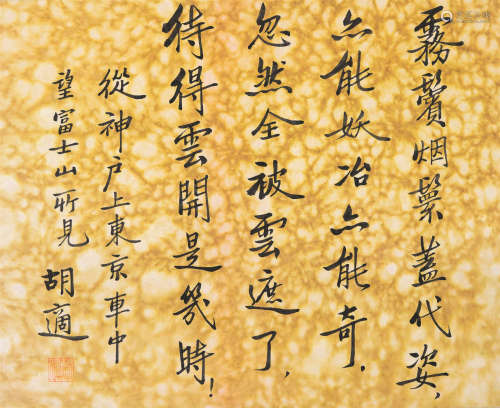 霧鬢烟鬟蓋代姿，
亦能妖冶亦能奇．
忽然全被雲遮了，
待得雲開是幾時！
從神戶上東京車中
望富士山所見
胡適